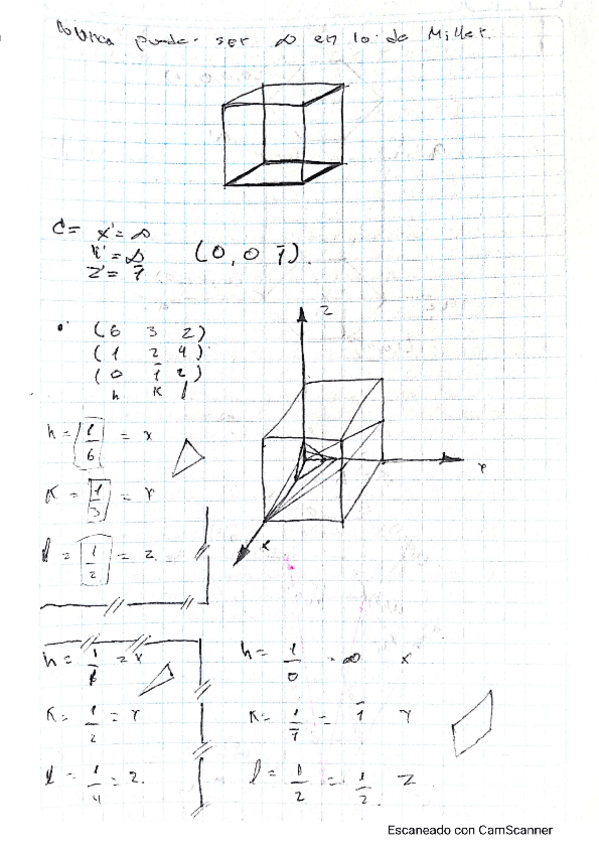 Nunca puede ser ∞ en lo de Miller.
C= x'= ∞
Y'= ∞
Z'= 1̄
(0, 0 1̄).
• (6 3 2)
(1 2 4)
(0 1̄ 2)
h K l
h = 1/6 = x
K = 1/3 = Y
l = 1/2 = z.
z
Y
x
h = 1/1 = x
K = 1/2 = Y
l = 1/4 = z.
h = 1/0 = ∞ x
K = 1/1̄ = 1̄ Y
l = 1/2 = 1/2. Z
Escaneado con CamScanner